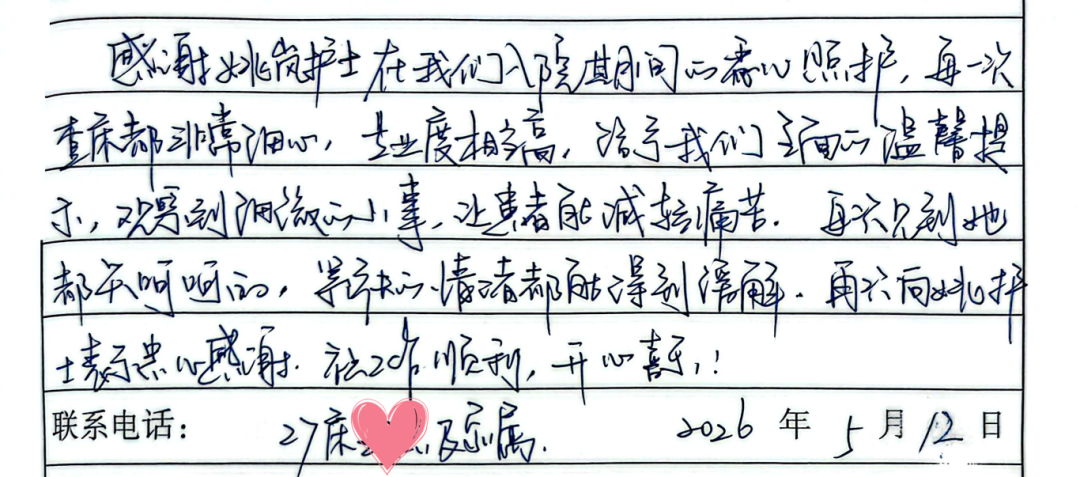 感谢姚岚护士在我们入院期间的看心照护,每一次
查床都非常细心,专业度相当高,给予我们全面的温馨提
示,观察到细微的小事,让患者能减轻痛苦.每次只到她
都笑呵呵的,等床的情绪都能得到缓解.再次向姚护
士表示衷心感谢.祝工作顺利,开心喜乐,!
联系电话: 27床 及家属. 2026 年 5 月 12 日